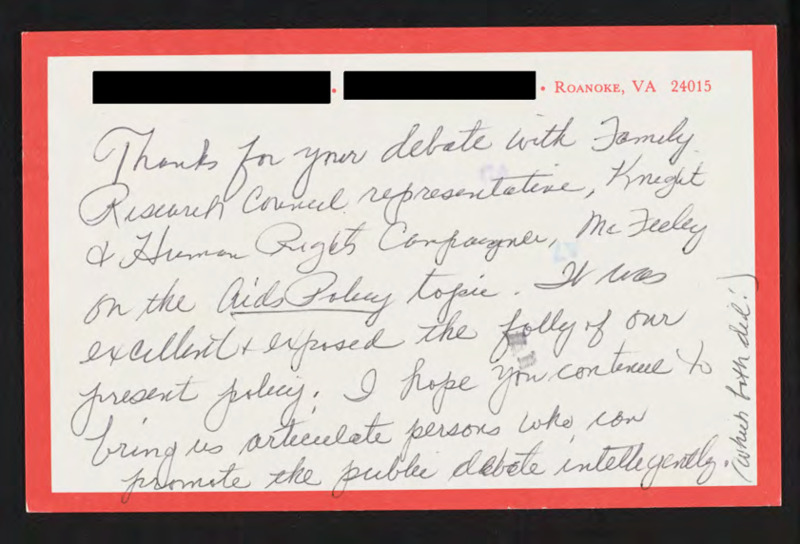 • • ROANOKE, VA 24015
Thanks for your debate with Family
Research Council representative, Knight
& Human Rights Campaigner, McFeeley
on the Aids Policy topic. It was
excellent & exposed the folly of our
present policy. I hope you continue to
bring us articulate persons who can
promote the public debate intellegently.
(which both did!)